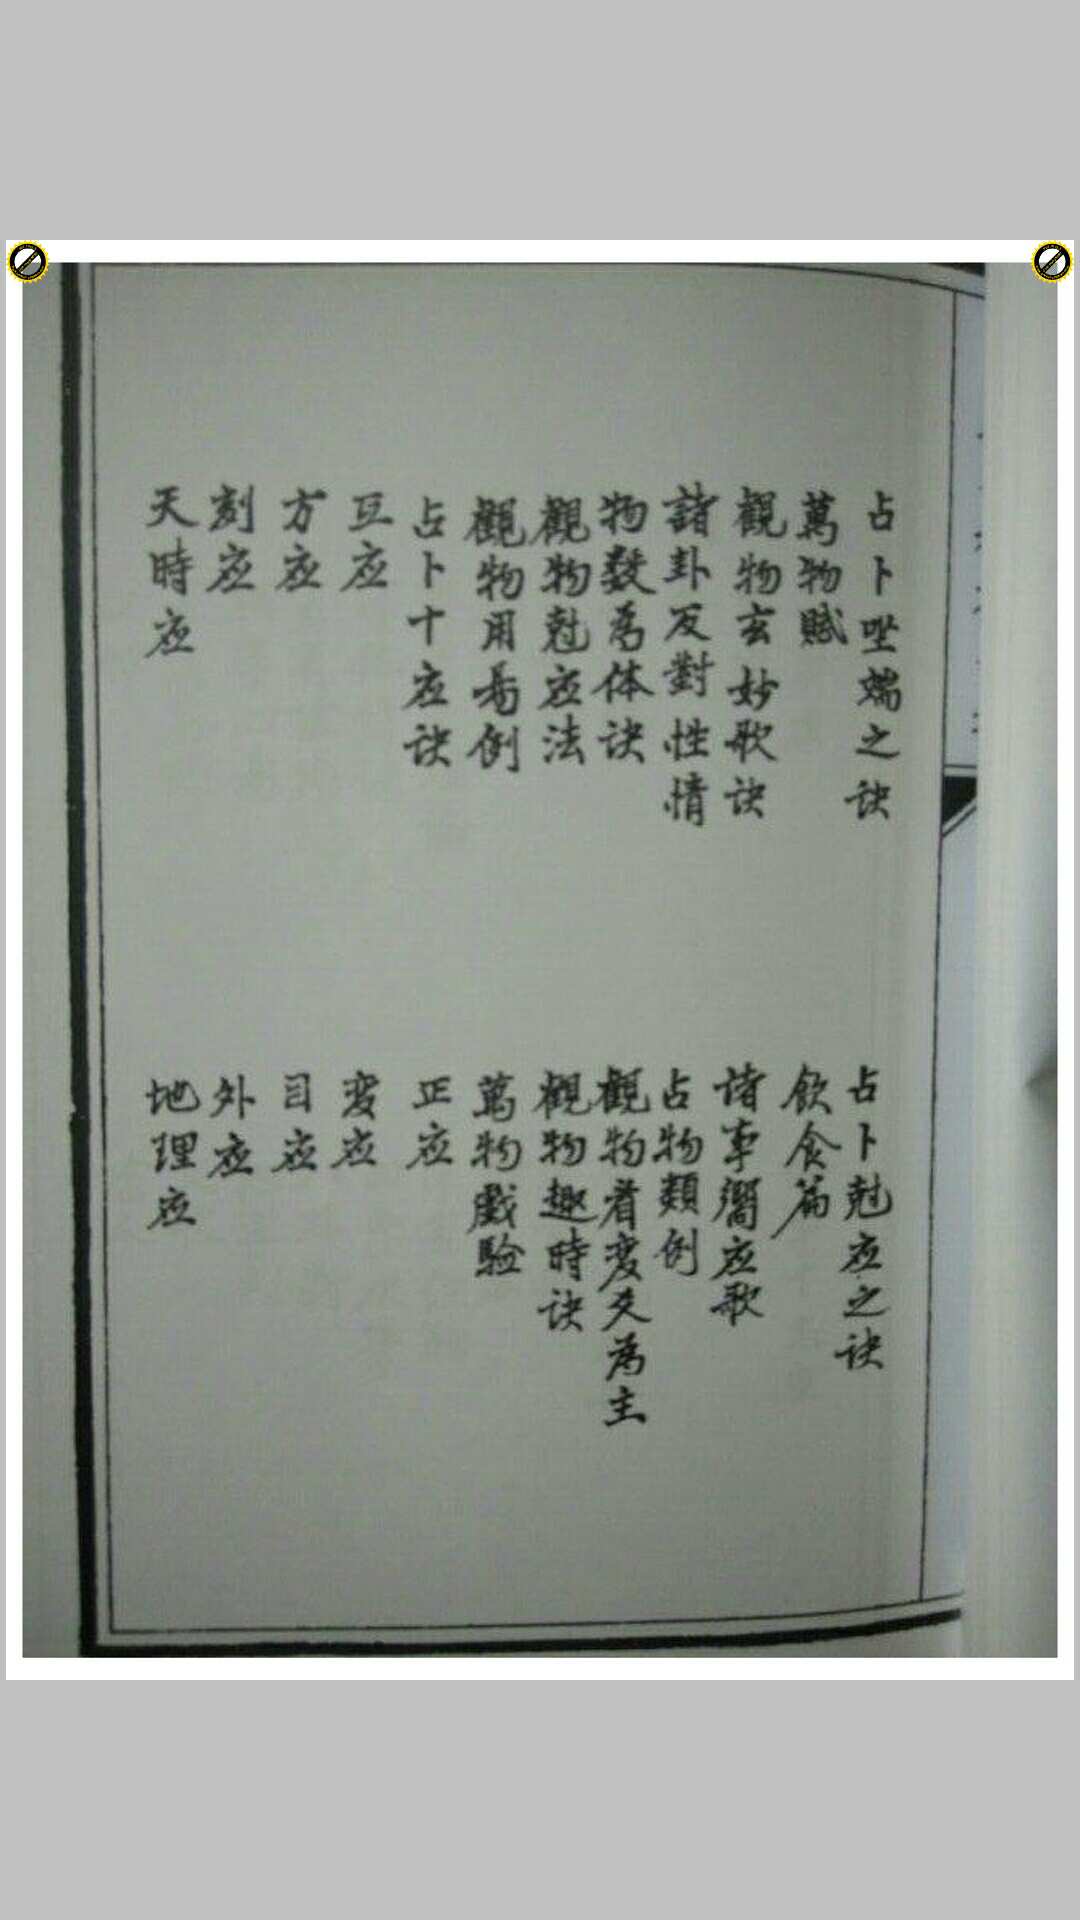 占卜坐端之诀
占卜尅应之诀
萬物賦
飲食篇
觀物玄妙歌诀
諸事響应歌
諸卦反對性情
占物類例
物数為体诀
觀物看变爻為主
觀物尅应法
觀物趣時诀
觀物用易例
萬物戲验
占卜十应诀
正应
互应
变应
方应
日应
刻应
外应
天時应
地理应